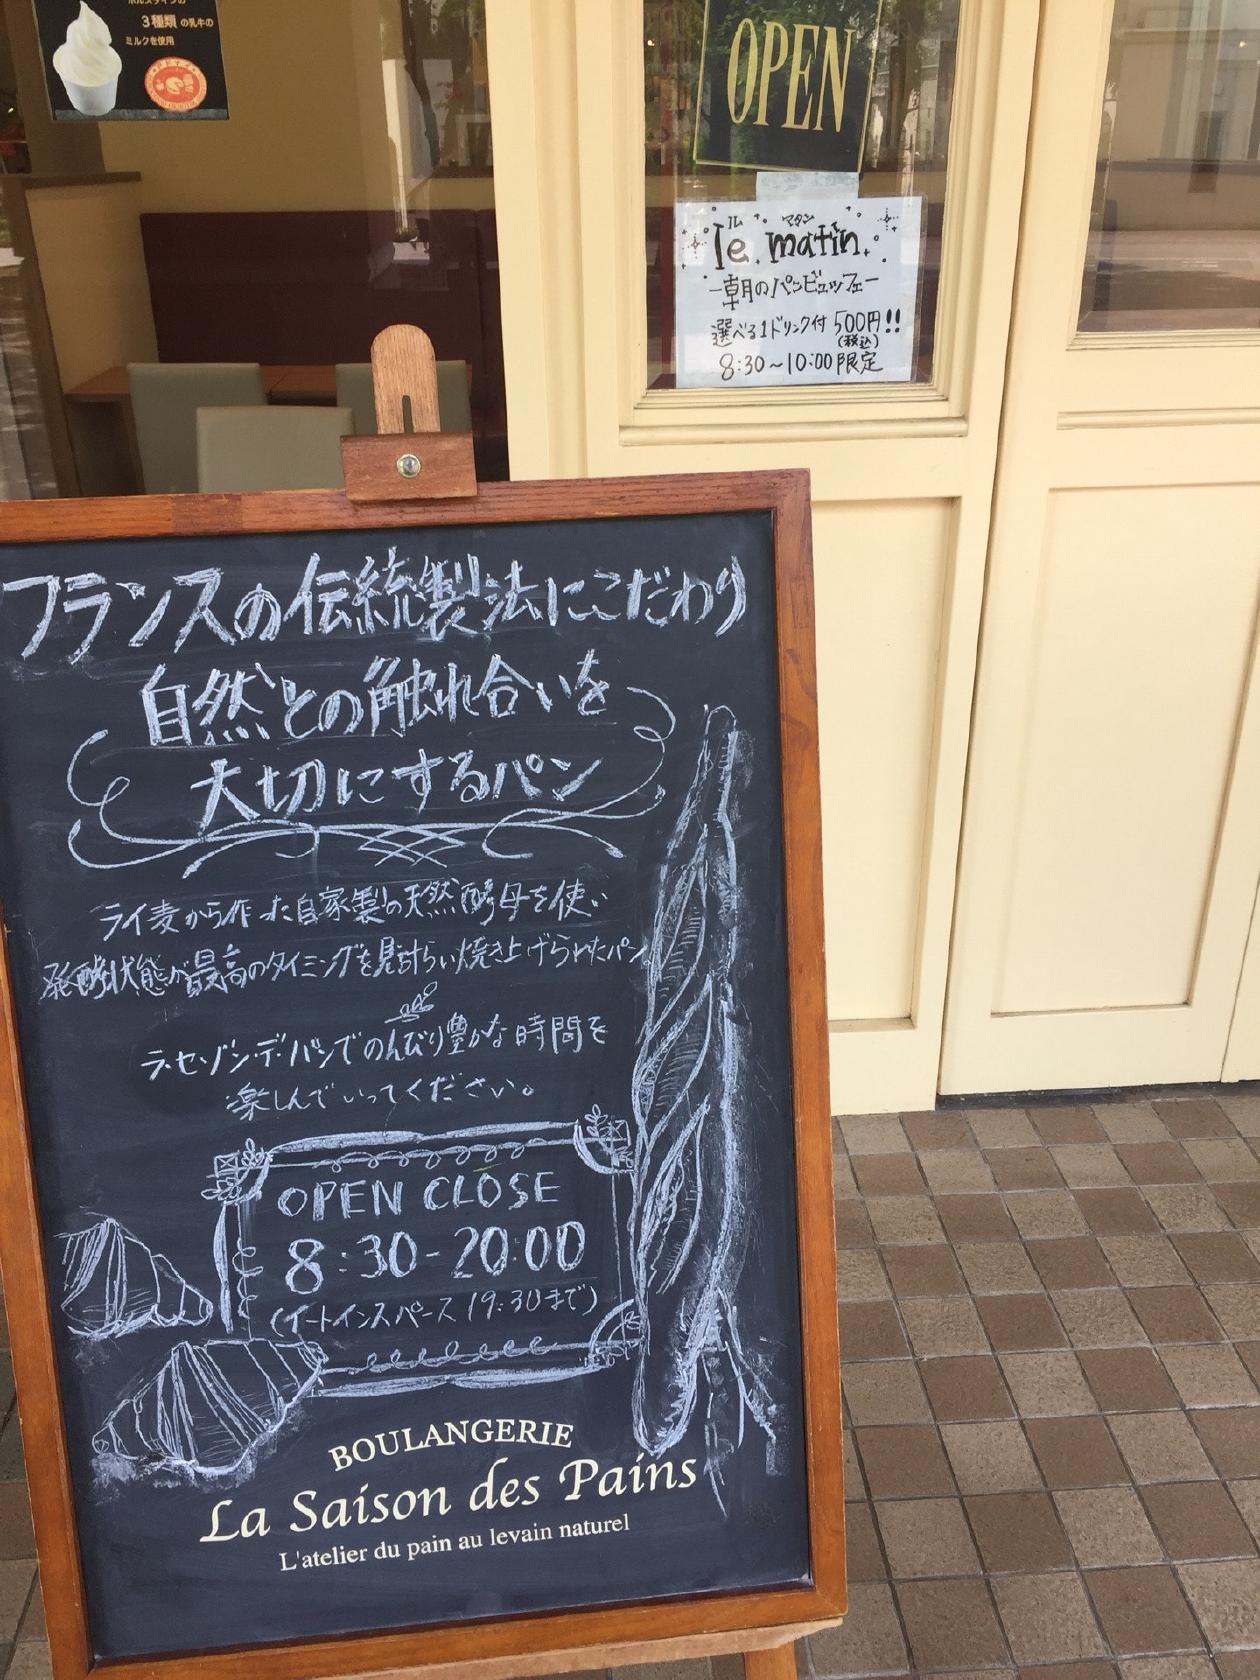 ホルスタインの
3種類の乳牛の
ミルクを使用
OPEN
ル マタン
le matin
ー朝のパンビュッフェー
選べる1ドリンク付 500円!!
(税込)
8:30～10:00限定
フランスの伝統製法にこだわり
自然との触れ合いを
大切にするパン
ライ麦から作った自家製の天然酵母を使い
発酵状態が最高のタイミングを見計らい焼き上げられたパン。
ラ・セ・ゾン・デ・パンでのんびり豊かな時間を
楽しんでいってください。
OPEN CLOSE
8:30-20:00
(イートインスペース 19:30まで)
BOULANGERIE
La Saison des Pains
L'atelier du pain au levain naturel